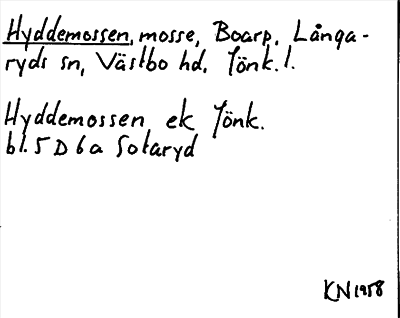 Hyddemossen, mosse, Boarp, Långa-
ryds sn, Västbo hd, Jönk. l.
Hyddemossen ek Jönk.
bl. 5 D 6 a Sotaryd
KN 1958